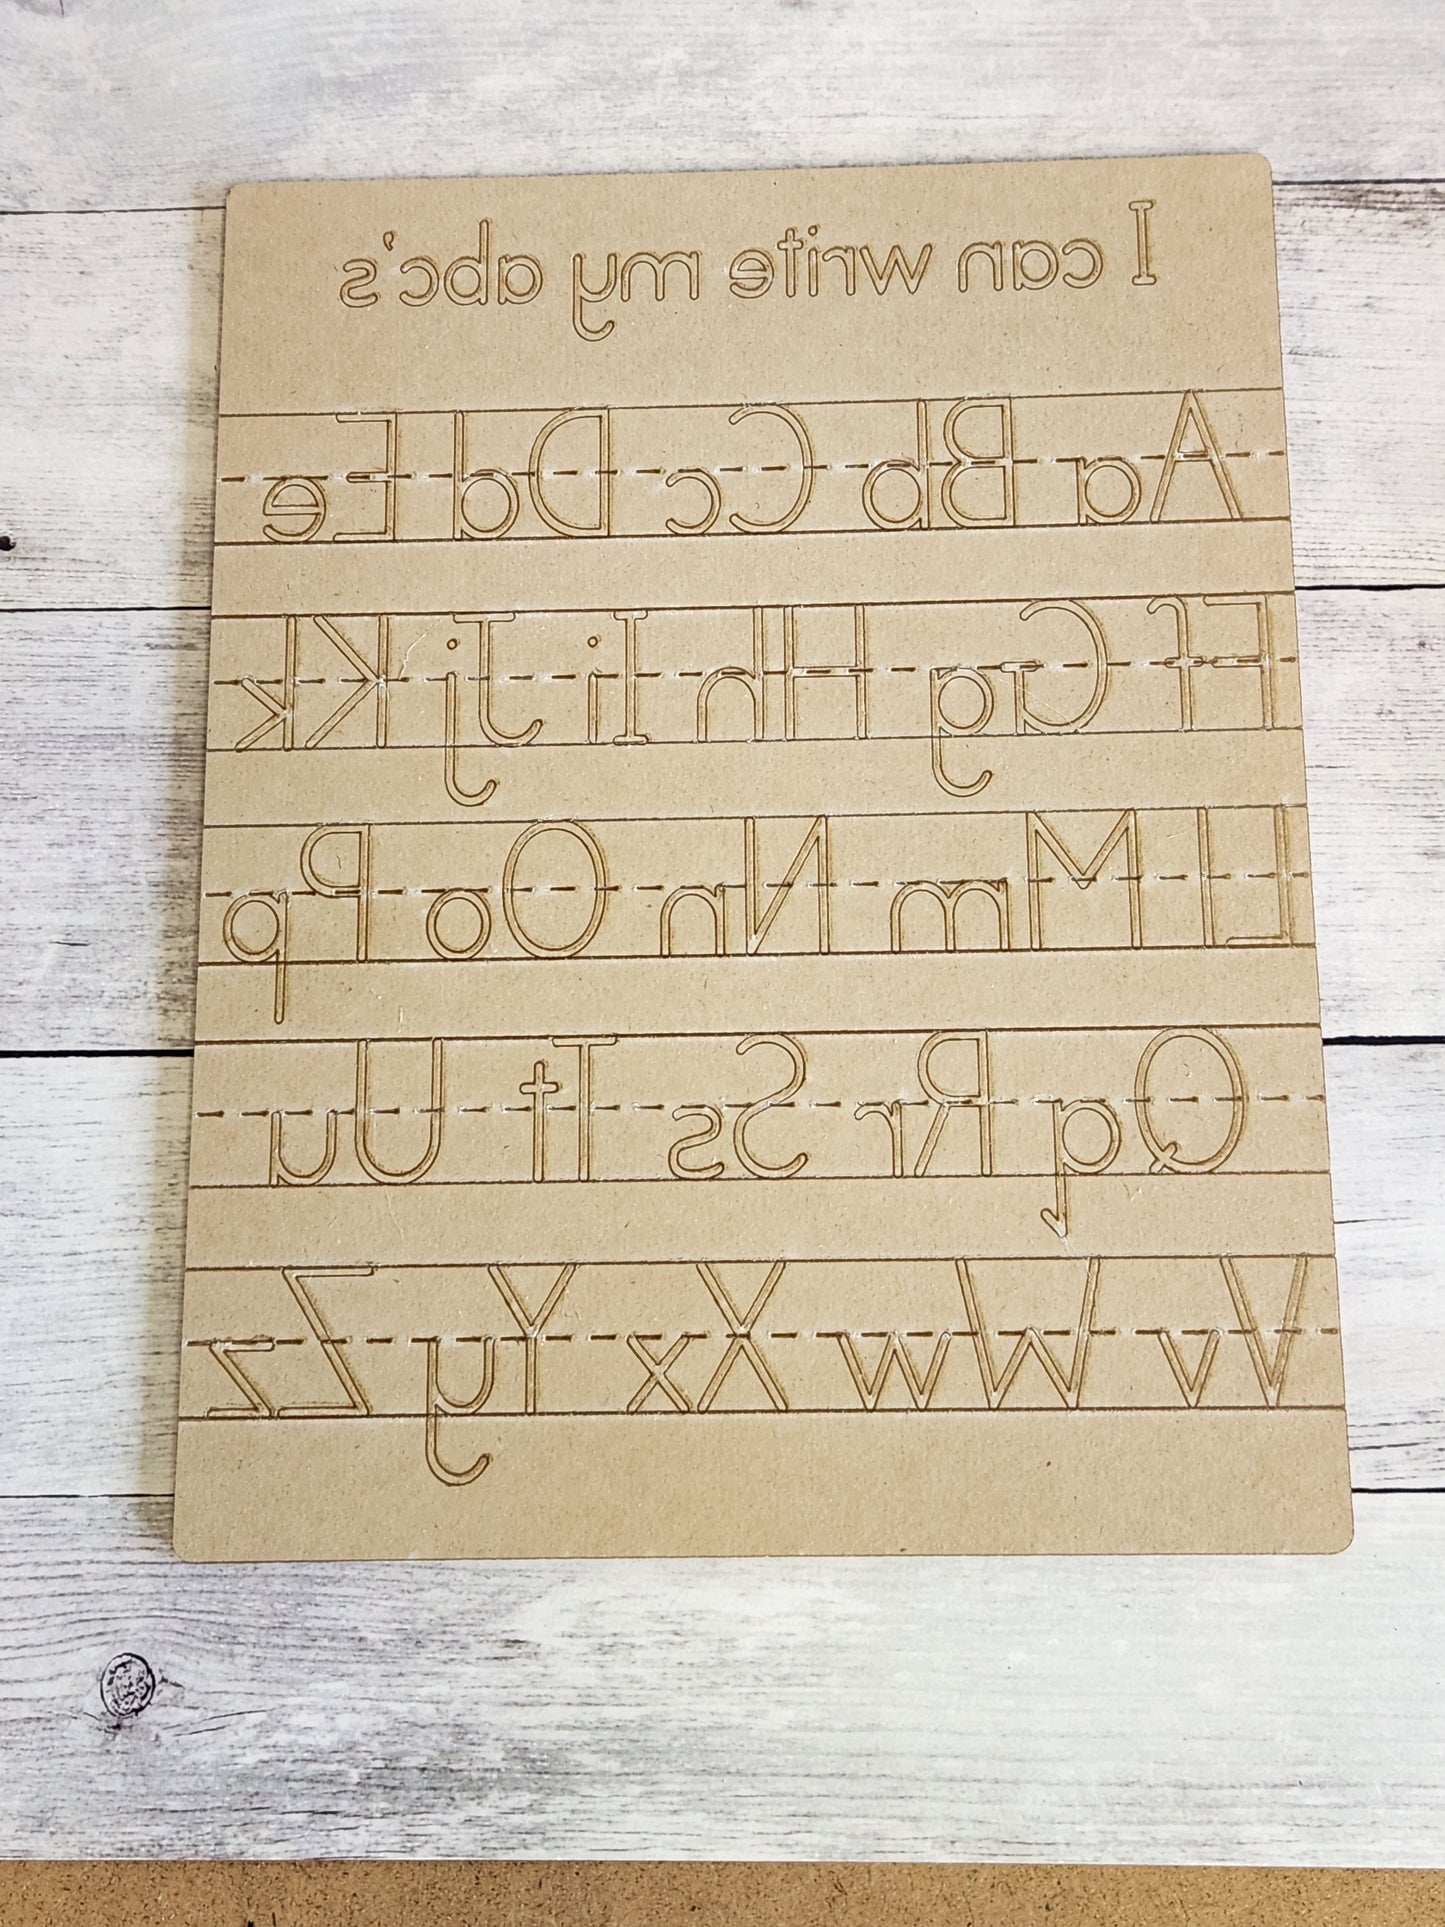 I can write my abc's
Aa Bb Cc Dd Ee
Ff Gg Hh Ii Jj Kk
Ll Mm Nn Oo Pp
Qq Rr Ss Tt Uu
Vv Ww Xx Yy Zz